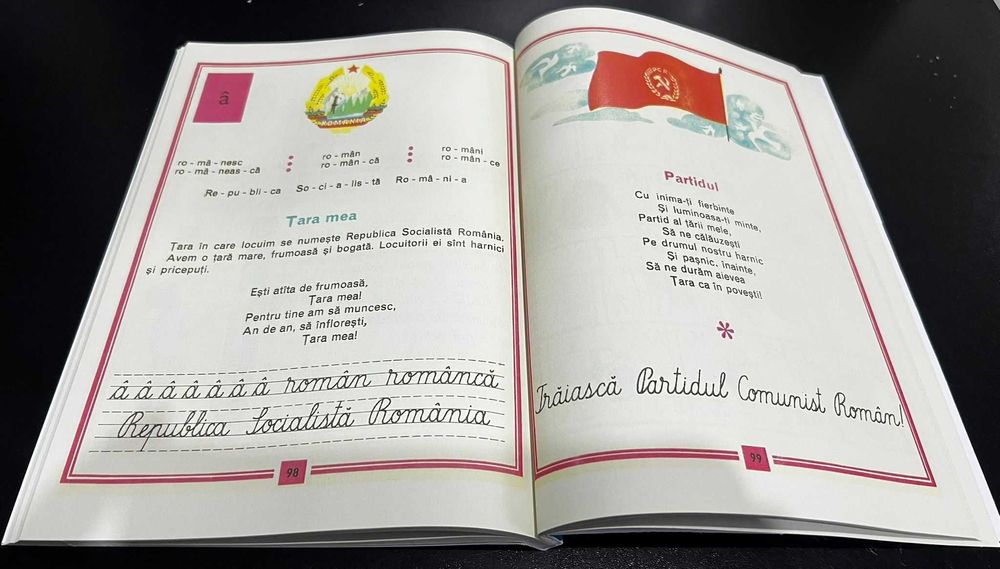 â
ROMÂNIA
ro - mâ - nesc
ro - mâ - neas - că
ro - mân
ro - mân - că
ro - mâni
ro - mân - ce
Re - pu - bli - ca So - ci - a - lis - tă Ro - mâ - ni - a
Țara mea
Țara în care locuim se numește Republica Socialistă România.
Avem o țară mare, frumoasă și bogată. Locuitorii ei sînt harnici
și pricepuți.
Ești atîta de frumoasă,
Țara mea!
Pentru tine am să muncesc,
An de an, să înflorești,
Țara mea!
â â â â â â â român româncă
Republica Socialistă România
98
PCR
Partidul
Cu inima-ți fierbinte
Și luminoasa-ți minte,
Partid al țării mele,
Să ne călăuzești
Pe drumul nostru harnic
Și pașnic, înainte,
Să ne durăm aievea
Țara ca în povești!
*
Trăiască Partidul Comunist Român!
99